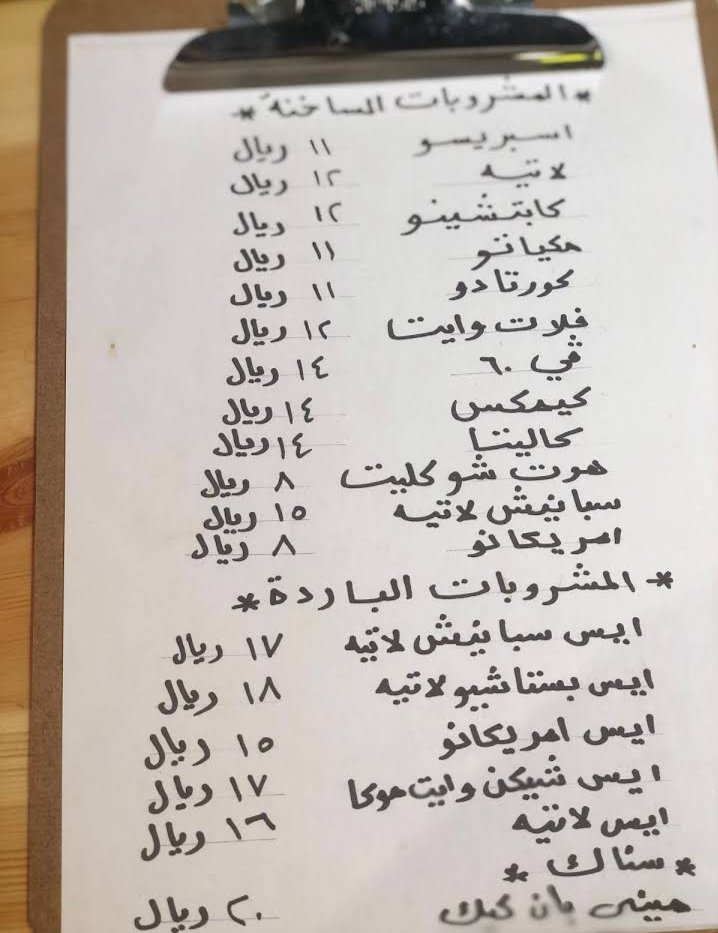 * المشروبات الساخنة *
اسبريسو ١١ ريال
لاتيه ١٢ ريال
كابتشينو ١٢ ريال
مكياتو ١١ ريال
كورتادو ١١ ريال
فلات وايت ١٢ ريال
ڤي ٦٠ ١٤ ريال
كيمكس ١٤ ريال
كاليتا ١٤ ريال
هوت شوكليت ٨ ريال
سبانيش لاتيه ١٥ ريال
امريكانو ٨ ريال
* المشروبات الباردة *
ايس سبانيش لاتيه ١٧ ريال
ايس بستاشيو لاتيه ١٨ ريال
ايس امريكانو ١٥ ريال
ايس شيكن وايت موكا ١٧ ريال
ايس لاتيه ١٦ ريال
* سناك *
ميني بان كيك ٢٠ ريال